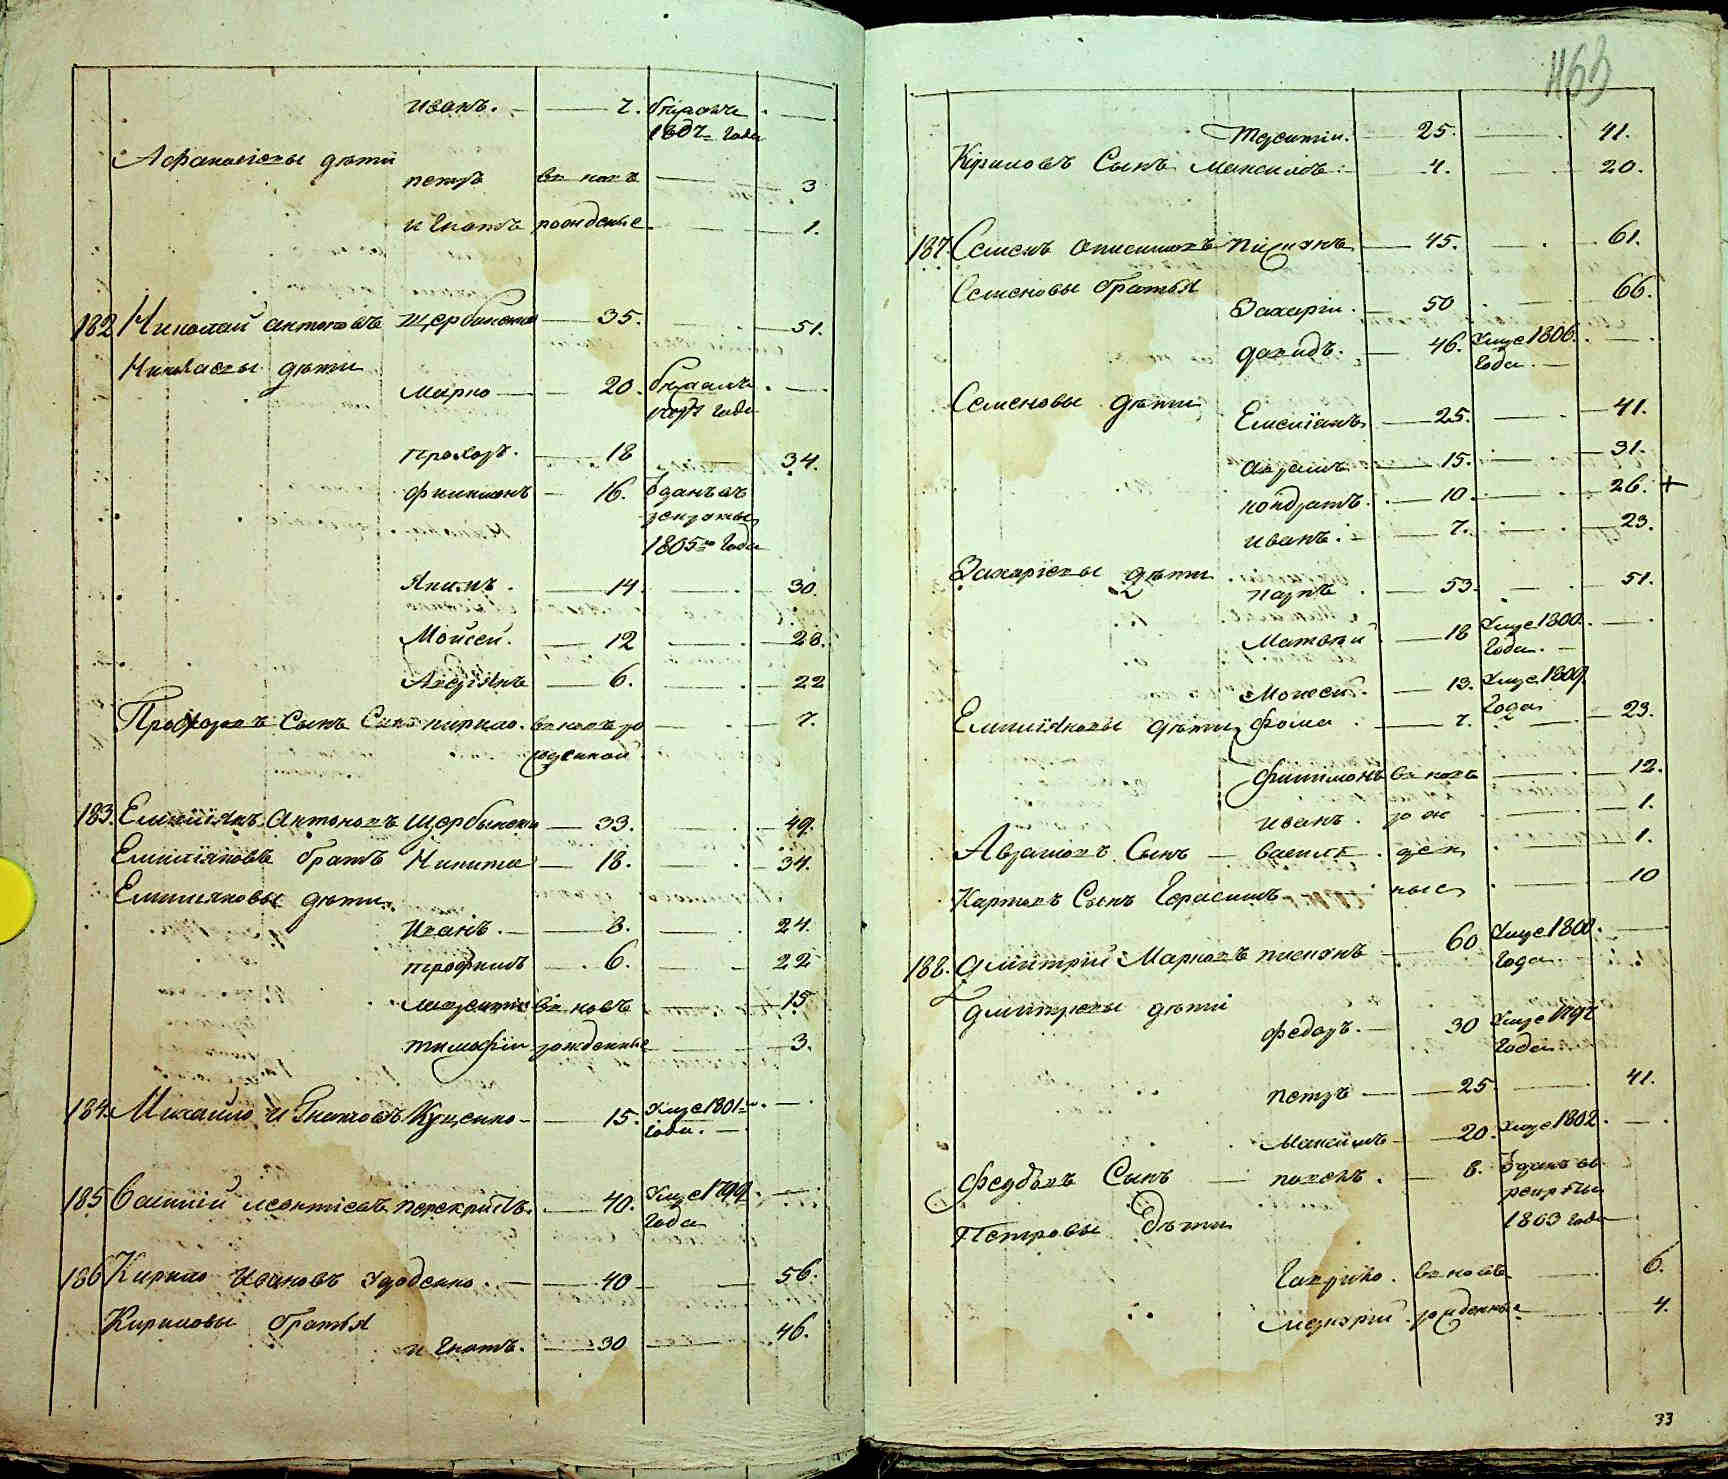 Иванъ. 7. 1807 года
Афанасіевы дѣти
петръ вновь 3
Игнатъ рожденые 1.
182 Николай антоновъ щербинской 35. 51.
Николаевы дѣти
Марко 20.
года
прохоръ. 18 34.
филимонъ 16. Отданъ въ
рекруты
1805го года
Якимъ. 14. 30.
Мойсей. 12 28.
Андріянъ 6. 22
Прохоровъ Сынъ кирило. вновь ро 7.
183. Емилїянъ антоновъ щербинской 33. 49.
Емилїяновъ братъ Никита 18. 34.
Емилияновы дѣти
Иванъ. 8. 24.
трофимъ 6. 22
вновь 15
тимофїи рожденные 3.
184. Михайло Игнатовъ Куценко 15. Умре 1801го
года.
185 Василїй леонтїевъ 40. Умре 1799.
года
186 Кирило Ивановъ Удоденко. 40 56.
Кириловы братья
Игнатъ. 30 46.
463
терентїи. 25. 41.
Кириловъ Сынъ Максимъ 4. 20.
187. Семенъ анисимовъ 45. 61.
Семеновы братья
Захарїи. 50 66.
давидъ. 46. Умре 1806.
года.
Семеновы дѣти
Емелїанъ 25. 41.
аврамъ 15. 31.
кондратъ. 10. 26. +
иванъ. 7. 23.
Захарїевы дѣти
карпъ 53. 51.
Матвѣй 18 Умре 1800.
года.
Моисей. 13. Умре 1809.
года
Емилїяновы дѣти фома 7. 23.
филимонъ вновь 12.
иванъ. рож 1.
Аврамовъ Сынъ василь. ден 1.
Карповъ Сынъ Герасимъ ные 10
188. Дмитрїй Марковъ 60 Умре 1800.
года
Дмитрїевы дѣти
федоръ. 30 Умре 1797
года
петръ 25 41.
Максимъ 20. Умре 1802.
Сынъ павелъ. 8. Отданъ въ
рекруты
1803 года
Петровы Дѣти
Гаврило. вновь 6.
рожденные 4.
33